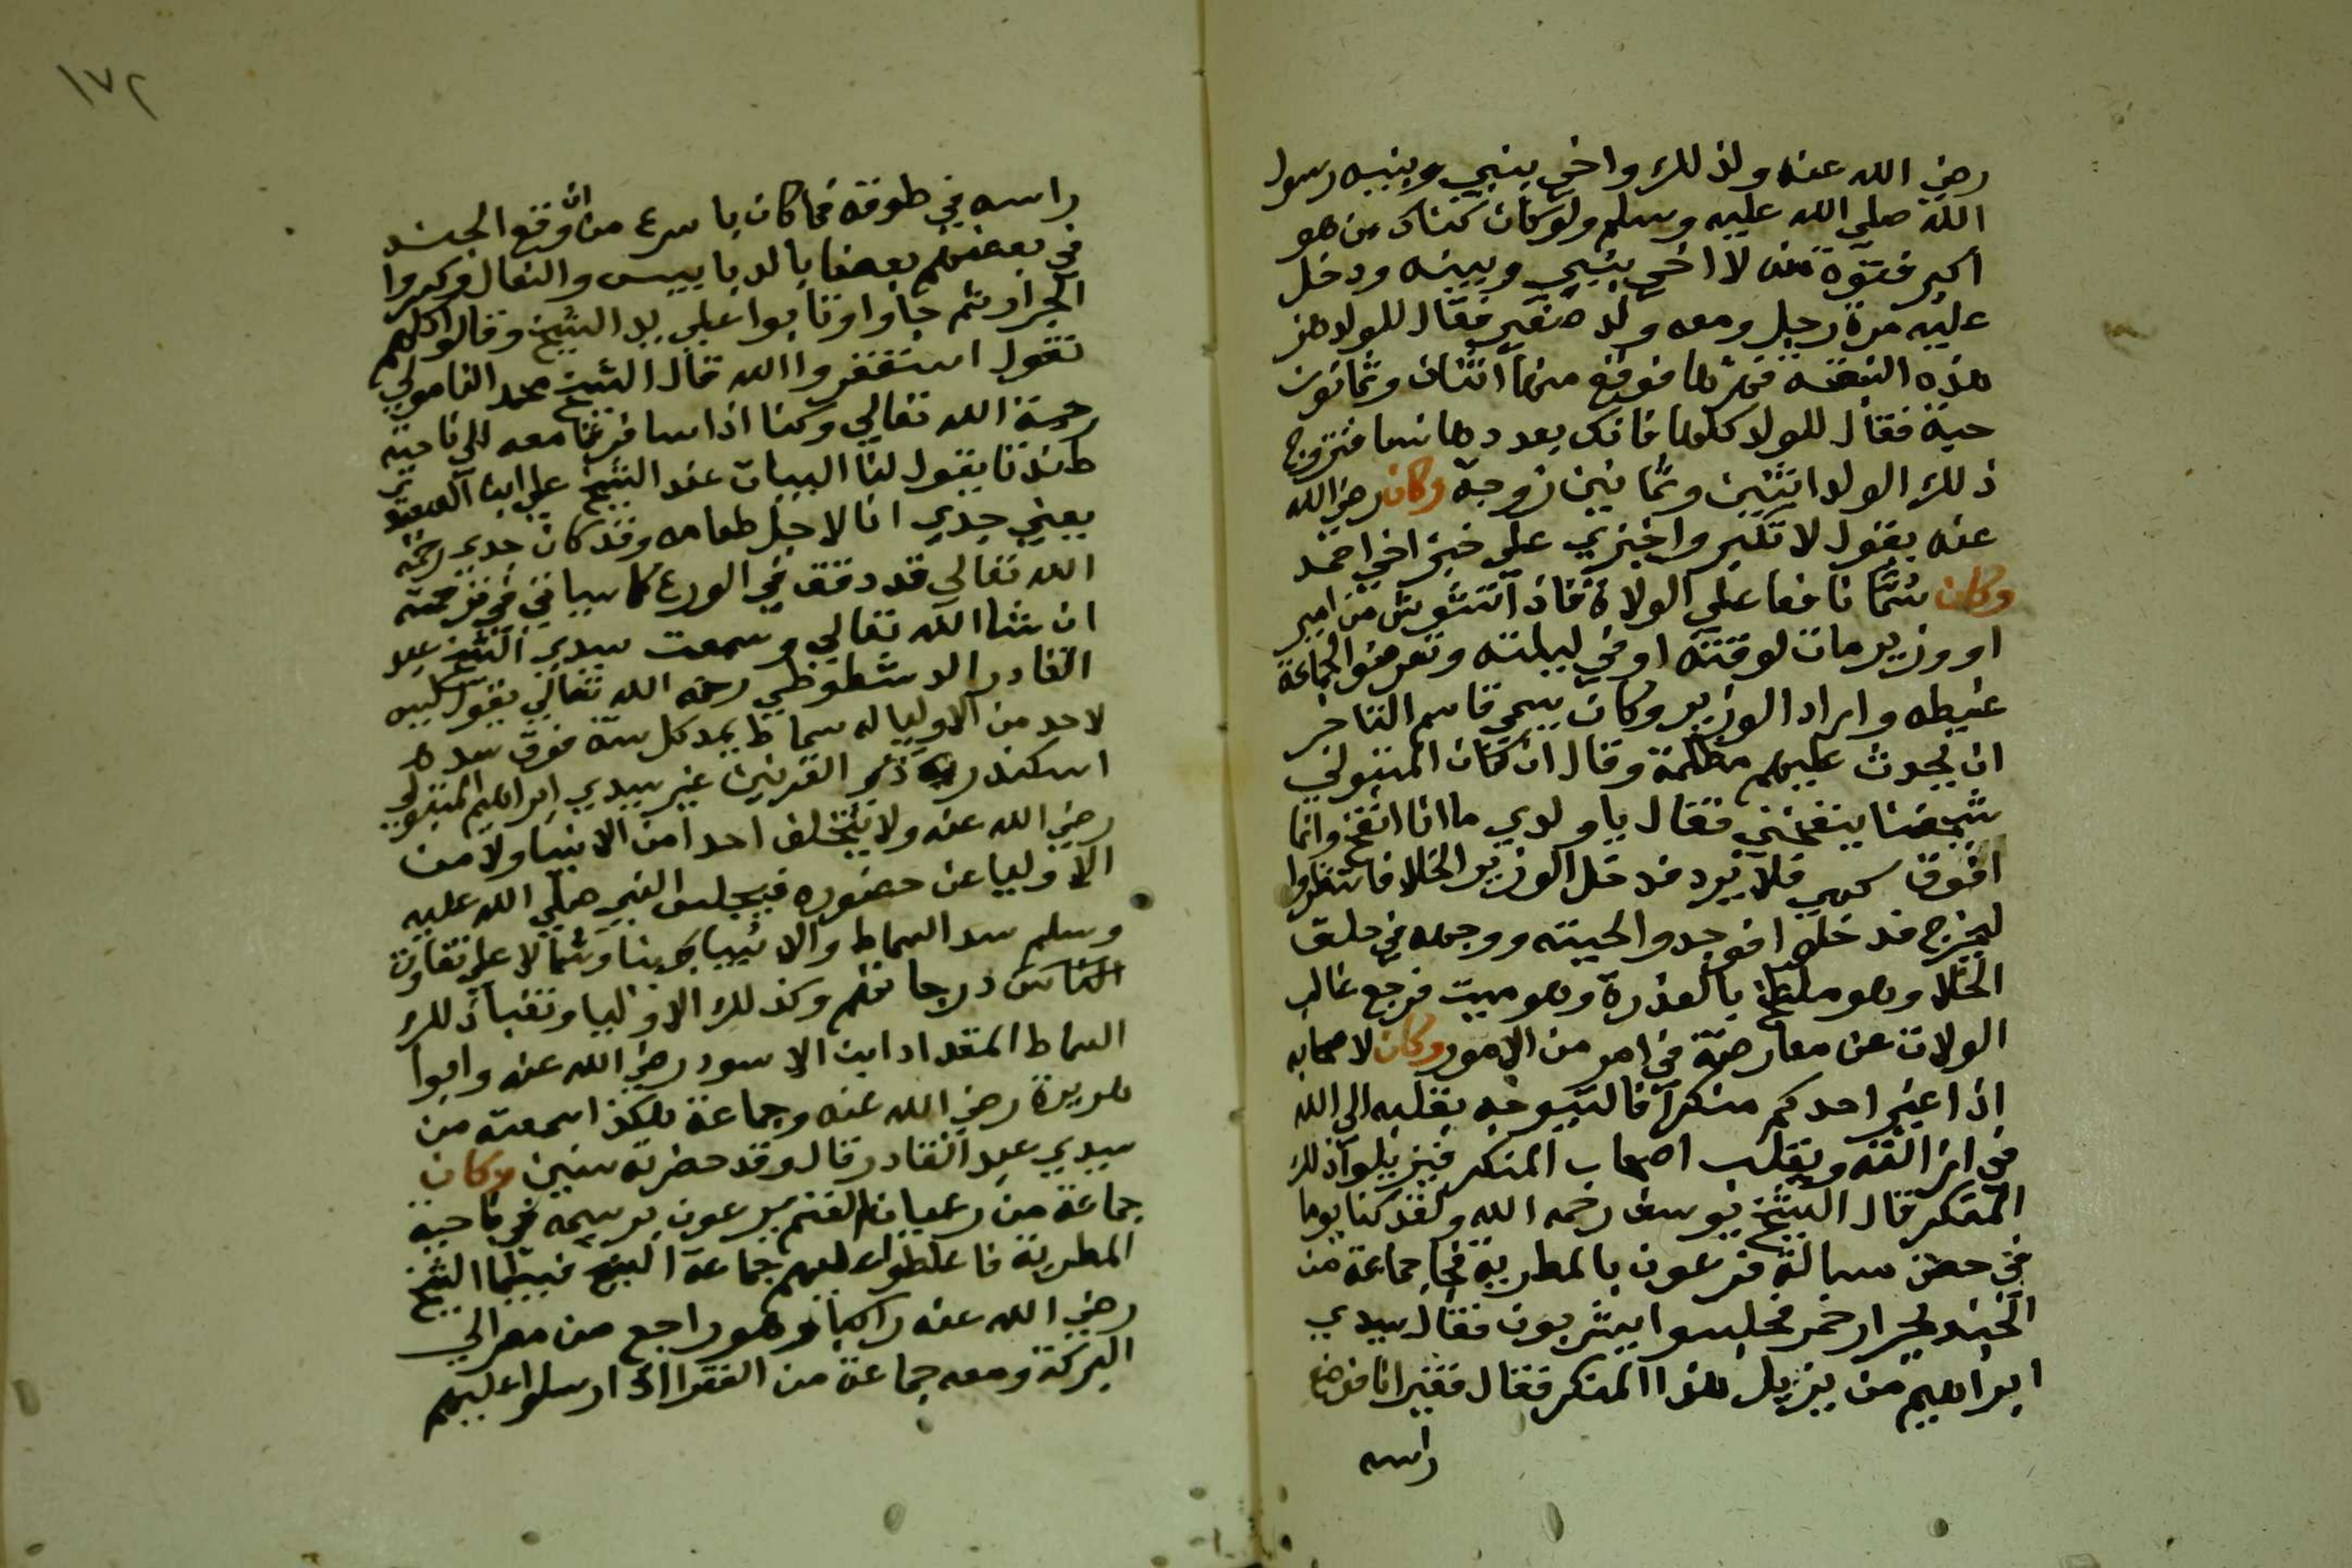 رضي الله عنه ولذلك واخي بيني وبينه رسول
الله صلي الله عليه وسلم ولو كان هناك من هو
اكبر فتوة منه لا اخي بيني وبينه ودخل
عليه مرة رجل ومعه ولد صغير فقال للولد هز
هذه النبقة فهزها فوقع منها اثنتان وثمانون
حبة فقال للولد كلها فانك بعددها نسا فتزوج
ذلك الولد اثنين وثمانين زوجة وكان رضي الله
عنه يقول لا تكبر واخبزي علي خبز اخي احمد
وكان سما نافعا علي الولاة فاذا تشوش من امير
او وزير مات لوقته او في ليلته وتعرضوا لجماعة
غيطه واراد الوزير وكان يسمي قاسم التاجر
ان يحدث عليهم مظلمة وقال ان كان المتبولي
ينفخني فقال يا ولدي ما انا انفخ وانما
افوق سهمي فلا يرد فدخل الوزير الخلا فانتظروا
ليخرج فدخلوا فوجدوا لحيته ووجهه في حلق
الخلا وهو ملطخ بالعذرة وهو ميت فرجع غالب
الولات عن معارضة في امر من الامور وكان لاصحابه
اذا غير احدكم منكرا فاليتوجه بقلبه الي الله
في ازالته وبقلب اصحاب المنكر فيزيلوا ذلك
المنكر قال الشيخ يوسف رحمه الله ولقد كنا يوما
في حضن سبالة فرعون بالمطرية فجا جماعة من
الجند بجرار خمر فجلسوا يشربون فقال سيدي
ابراهيم من يزيل هذا المنكر فقال فقير انا فوضع
راسه
١٧٢
راسه في طوقه فما كان باسرع من ان وقع الجند
في بعضهم بعضا بالدبابيس والنعال وكسروا
الجرار ثم جاوا وتابوا علي يد الشيخ وقالوا كلهم
نقول استغفروا الله قال الشيخ محمد النامولي
رحمة الله تعالي وكنا اذا سافرنا معه الي ناحية
طندتا يقول لنا البيات عند الشيخ علي ابن
يعني جدي انا لاجل طعامه وقد كان جدي رحمه
الله تعالي قد دقق في الورع كما سياتي في ترجمته
ان شا الله تعالي وسمعت سيدي الشيخ عبد
القادر الدشطوطي رحمه الله تعالي يقول ليس
لاحد من الاوليا له سماط يمد كل سنة فوق سد
اسكندر ذي القرنين غير سيدي ابراهيم المتبولي
رضي الله عنه ولا يتخلف احدا من الانبيا ولا من
الاوليا عن حضوره فيجلس النبي صلي الله عليه
وسلم صدر السماط والانبيا يمينا وشمالا علي تفاوت
درجاتهم وكذلك الاوليا ونقبا ذلك
السماط المقداد ابن الاسود رضي الله عنه وابوا
هريرة رضي الله عنه وجماعة هكذا سمعته من
سيدي عبد القادر قال وقد حضرته سنين وكان
جماعة من رعيان الغنم يرعون برسيمه في ناحية
المطرية فاغلظوا عليهم جماعة الشيخ فبينما الشيخ
رضي الله عنه راكبا وهو راجع من مصر الي
البركة ومعه جماعة من الفقرا اذ ارسلوا عليهم